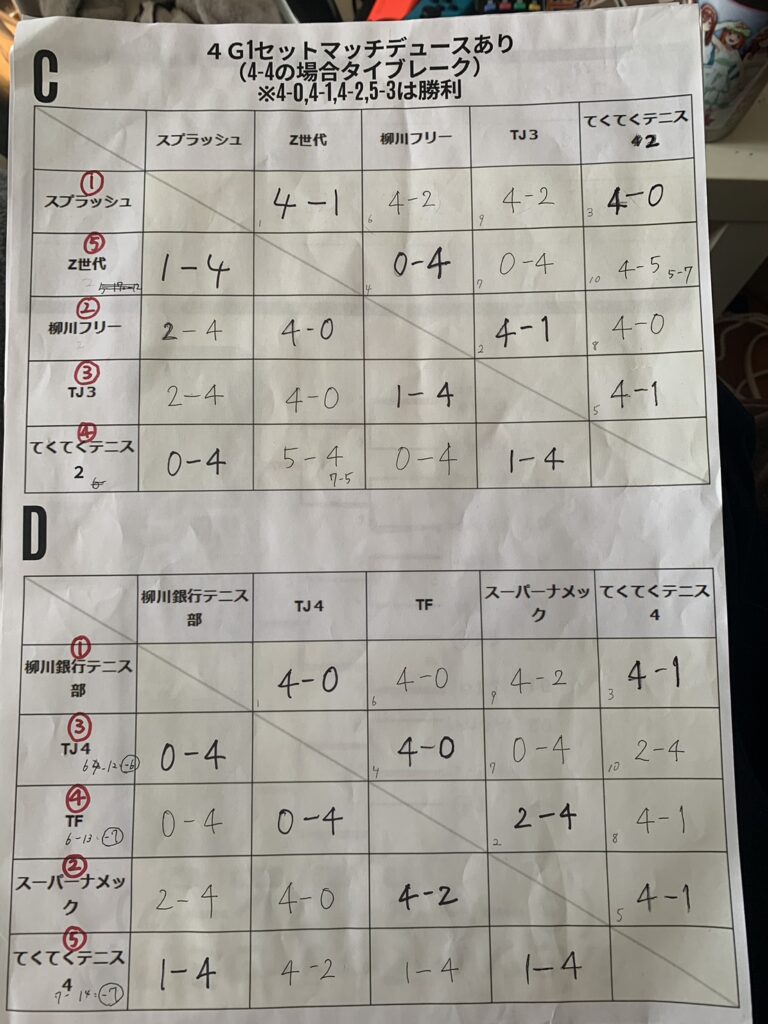 C
4G1セットマッチデュースあり
(4-4の場合タイブレーク)
※4-0,4-1,4-2,5-3は勝利
スプラッシュ Z世代 柳川フリー TJ3 てくてくテニス
2
① スプラッシュ 1 4-1 6 4-2 9 4-2 3 4-0
⑤ Z世代 1-4 4 0-4 7 0-4 10 4-5 5-7
② 柳川フリー 2-4 4-0 2 4-1 8 4-0
③ TJ3 2-4 4-0 1-4 5 4-1
④ てくてくテニス
2 0-4 5-4 7-5 0-4 1-4
D
柳川銀行テニス
部 TJ4 TF スーパーナメッ
ク てくてくテニス
4
① 柳川銀行テニス
部 1 4-0 6 4-0 9 4-2 3 4-1
③ TJ4 0-4 4 4-0 7 0-4 10 2-4
-12 -6
④ TF 0-4 0-4 2 2-4 8 4-1
6-13 -7
② スーパーナメッ
ク 2-4 4-0 4-2 5 4-1
⑤ てくてくテニス
4 1-4 4-2 1-4 1-4
7-14=-7